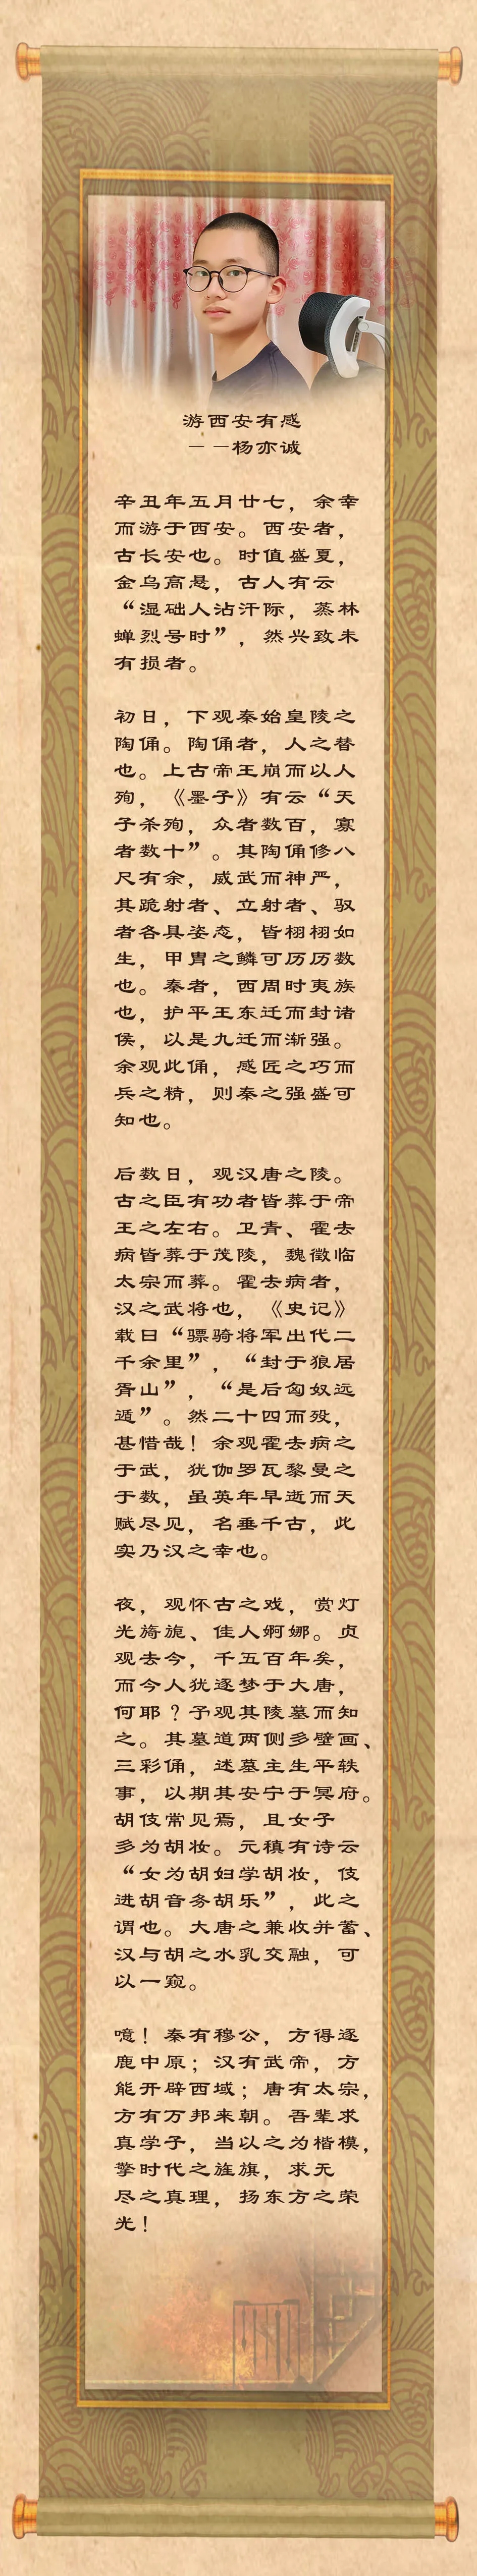 游西安有感
——杨亦诚
辛丑年五月廿七，余幸
而游于西安。西安者，
古长安也。时值盛夏，
金乌高悬，古人有云
“湿础人沾汗际，蒸林
蝉烈号时”，然兴致未
有损者。
初日，下观秦始皇陵之
陶俑。陶俑者，人之替
也。上古帝王崩而以人
殉，《墨子》有云“天
子杀殉，众者数百，寡
者数十”。其陶俑修八
尺有余，威武而神严，
其跪射者、立射者、驭
者各具姿态，皆栩栩如
生，甲胄之鳞可历历数
也。秦者，西周时夷族
也，护平王东迁而封诸
侯，以是九迁而渐强。
余观此俑，感匠之巧而
兵之精，则秦之强盛可
知也。
后数日，观汉唐之陵。
古之臣有功者皆葬于帝
王之左右。卫青、霍去
病皆葬于茂陵，魏徵临
太宗而葬。霍去病者，
汉之武将也，《史记》
载曰“骠骑将军出代二
千余里”，“封于狼居
胥山”，“是后匈奴远
遁”。然二十四而殁，
甚惜哉！余观霍去病之
于武，犹伽罗瓦黎曼之
于数，虽英年早逝而天
赋尽见，名垂千古，此
实乃汉之幸也。
夜，观怀古之戏，赏灯
光旖旎、佳人婀娜。贞
观去今，千五百年矣，
而今人犹逐梦于大唐，
何耶？予观其陵墓而知
之。其墓道两侧多壁画、
三彩俑，述墓主生平轶
事，以期其安宁于冥府。
胡伎常见焉，且女子
多为胡妆。元稹有诗云
“女为胡妇学胡妆，伎
进胡音务胡乐”，此之
谓也。大唐之兼收并蓄、
汉与胡之水乳交融，可
以一窥。
噫！秦有穆公，方得逐
鹿中原；汉有武帝，方
能开辟西域；唐有太宗，
方有万邦来朝。吾辈求
真学子，当以之为楷模，
擎时代之旌旗，求无
尽之真理，扬东方之荣
光！